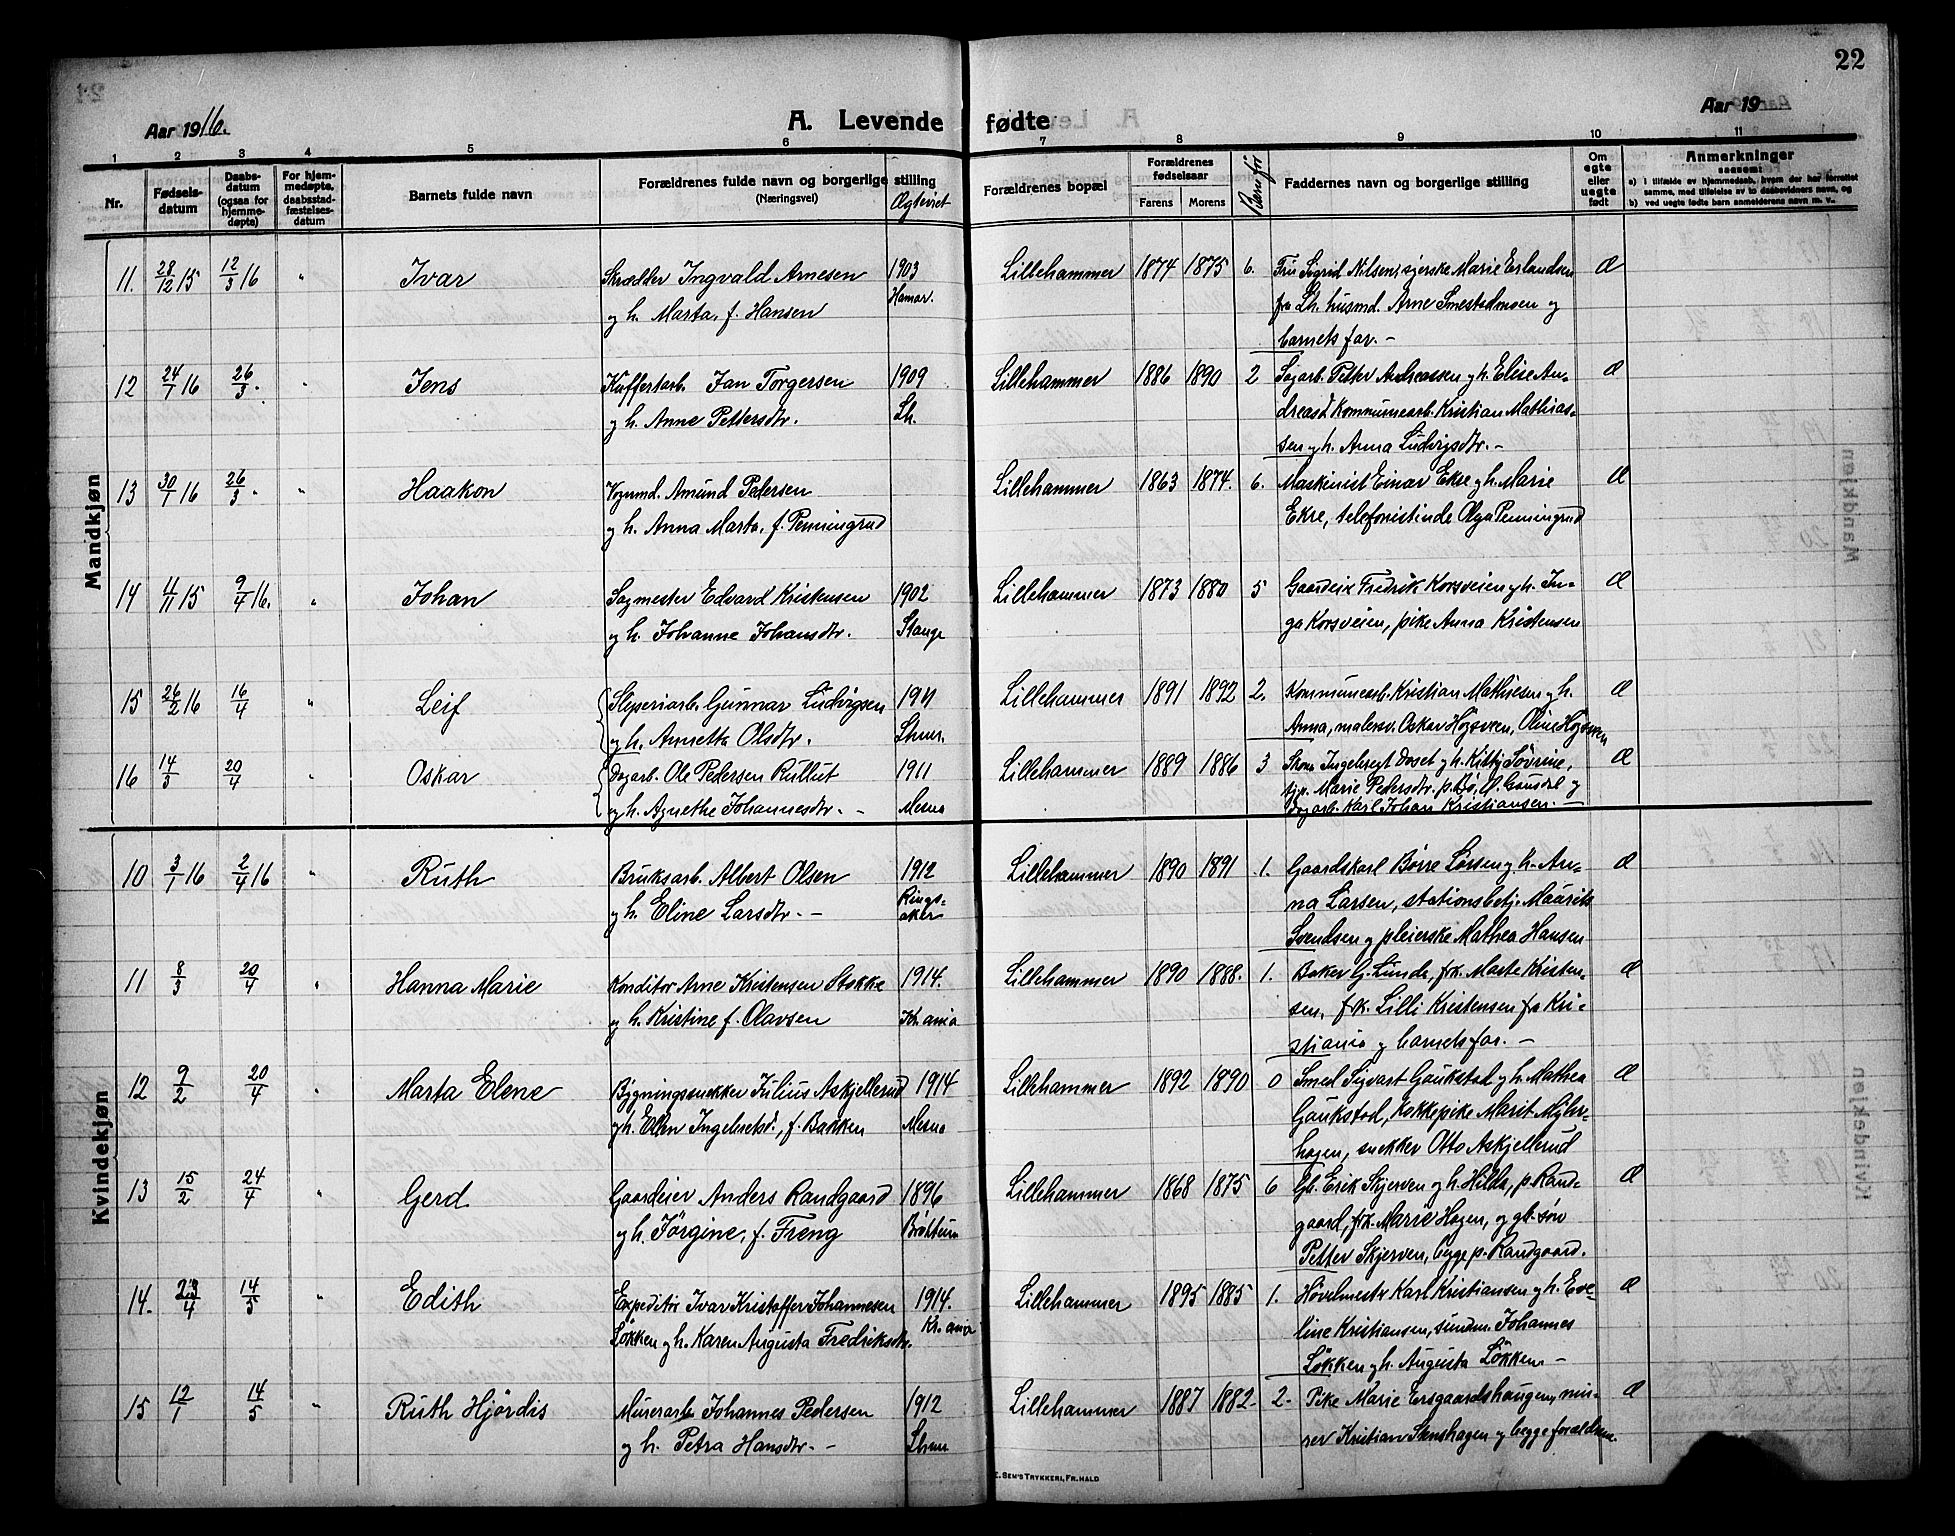 22
Aar 1916.
A. Levende fødte
Aar 19
1 2 3 4 5 6 7 8 9 10 11
Nr.
Fødselsdatum
Daabsdatum (ogsaa for hjemmedøpte)
For hjemmedøpte, daabsstadfæstelsesdatum
Barnets fulde navn
Forældrenes fulde navn og borgerlige stilling
(Næringsvei)
Ægteviet
Forældrenes bopæl
Forældrenes fødselsaar
Farens Morens
Barn før
Faddernes navn og borgerlige stilling
Om egte eller uegte født
Anmerkninger
saasom:
a) i tilfælde av hjemmedaab, hvem der har forrettet samme, med tilføielse av to daabsvidners navn, og
b) ved uegte fødte barn anmelderens navn m. v.
Mandkjøn
11. 28/12 15 12/3 16 " Ivar Skrædder Ingvald Arnesen 1903 Lillehammer 1874 1875 6. Fru Sigrid Nilsen, sjerske Marie Erlandsen Æ
og h. Marta, f. Hansen Hamar. fra Lh. husmd. Arne Smestadmoen og
barnets far. –
12 24/1 16 26/3. " Jens Kuffertarb. Jan Torgersen 1909 Lillehammer 1886 1890 2 Sagarb. Petter Andreassen og h. Elise An- Æ
og h. Anne Pettersdtr. Lh. dreasd. Kommunearb. Kristian Mathias-
sen og h. Anna Ludvigsdtr. –
13 30/1 16 26/3. " Haakon Vognmd. Amund Pedersen Lillehammer 1863 1874. 6. Maskinist Einar Ekre og h. Marie Æ
og h. Anna Marta, f. Penningrud Ekre, telefonistinde Olga Penningrud
14 4/11 15 9/4 16. " Johan Sagmester Edvard Kristensen 1902 Lillehammer 1873 1880 5 Gaardeier Fredrik Korsveien og h. In- Æ
og h. Johanne Johansdtr. Stange ga Korsveien, pike Anna Kristensen
15 26/2 16 16/4 " Leif Sliperiarb. Gunnar Ludvigsen 1911 Lillehammer 1891 1892 2. Kommunearb. Kristian Mathisen og h. Æ
og h. Annetta Olsdtr. Lhmr. Anna, malersv. Oskar Høgsveen, Oline Høgsveen
16 14/3 20/4 " Oskar Dagarb. Ole Pedersen Rullut 1911 Lillehammer 1889 1886 3 Skom. Ingebregt Doset og h. Kitty Søvrine, Æ
og h. Agnethe Johannesdtr. – Mesna tjp. Marie Pedersdtr. p. Bø, Ø. Gausdal og
dagarb. Karl Johan Kristiansen. –
Kvindekjøn
10 3/1 16 2/4 16 " Ruth Bruksarb. Albert Olsen 1912 Lillehammer 1890 1891 1. Gaardskarl Børre Larsen og h. An- Æ
og h. Eline Larsdtr. – Ringsaker na Larsen, stationsbetj. Maurits
Svendsen og pleierske Mathea Hansen
11 8/3 20/4 " Hanna Marie Konditor Arne Kristensen Stokke 1914. Lillehammer 1890 1888. 1. Baker G. Lunde, frk. Marte Kristen- Æ
og h. Kristine f. Olavsen Kr.ania sen, frk. Lilli Kristensen fra Kri-
stiania og barnets far. –
12 9/2 20/4 " Marta Elene Bygningssnekker Julius Askjellerud 1914 Lillehammer 1892 1890 0 Smed Sigvart Gaukstad og h. Mathea Æ
og h. Ellen Ingebretsd., f. Bakken Mesna Gaukstad, kokkepike Marit Myhr-
hagen, snekker Otto Askjellerud
13 15/2 24/4 " Gerd Gaardeier Anders Randgaard 1896 Lillehammer 1868 1875 6 Gb. Erik Skjerven og h. Hilda, p. Rand- Æ
og h. Jørgine, f. Freng Brøttum gaard, frk. Marie Hagen, og gb. søn
Petter Skjerven, begge p. Randgaard.
14. 23/4 14/5 " Edith Expeditør Ivar Kristoffer Johannesen 1914. Lillehammer 1895 1885 1. Høvelmestr. Karl Kristiansen og h. Eve- Æ
Løkken og h. Karen Augusta Fredriksdtr. Kr.ania line Kristiansen, Johannes
Løkken og h. Augusta Løkken –
15 12/1 14/5 " Ruth Hjørdis Murerarb. Johannes Pedersen 1912 Lillehammer 1887 1882 2 Pike Marie Ersgaardshaugen, mu- Æ
og h. Petra Hansdtr. – Lhmr rer Kristian Stenshagen og begge forældrene.
E. SEM'S TRYKKERI, FR.HALD